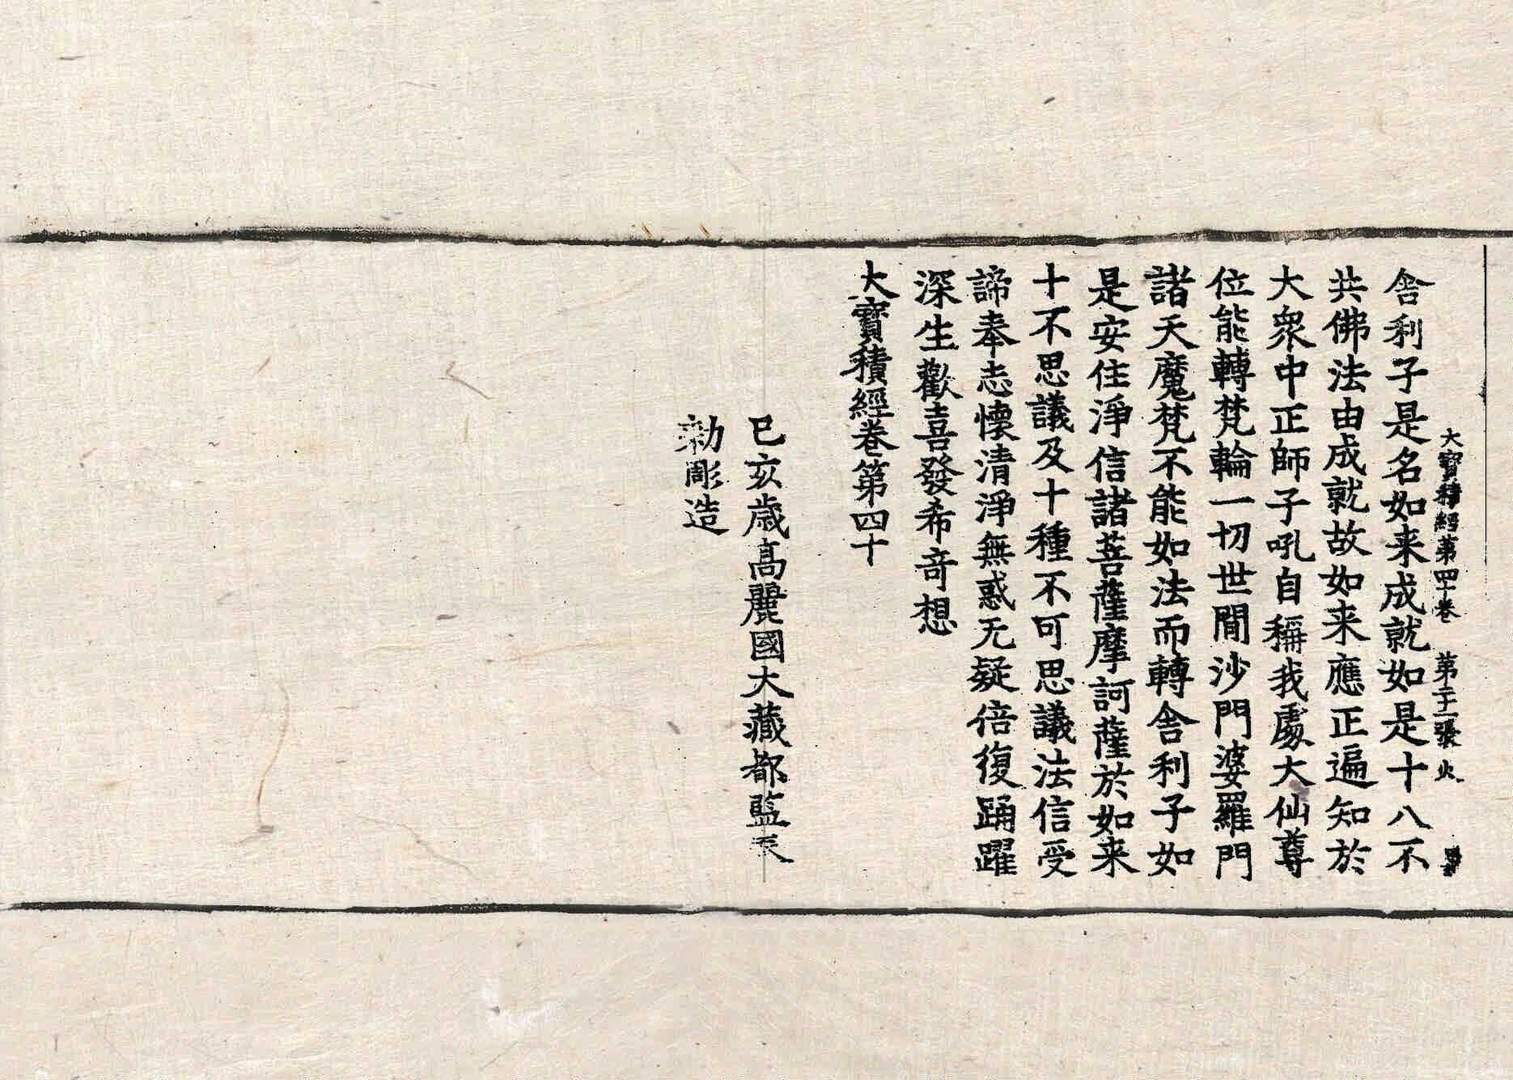 大寶積經第四十卷　第二十一張　火
舍利子是名如来成就如是十八不
共佛法由成就故如来應正遍知於
大衆中正師子吼自稱我處大仙尊
位能轉梵輪一切世間沙門婆羅門
諸天魔梵不能如法而轉舍利子如
是安住淨信諸菩薩摩訶薩於如来
十不思議及十種不可思議法信受
諦奉志懷清淨無惑无疑倍復踊躍
深生歡喜發希奇想
大寶積經卷第四十
己亥歲高麗國大藏都監奉
勑彫造